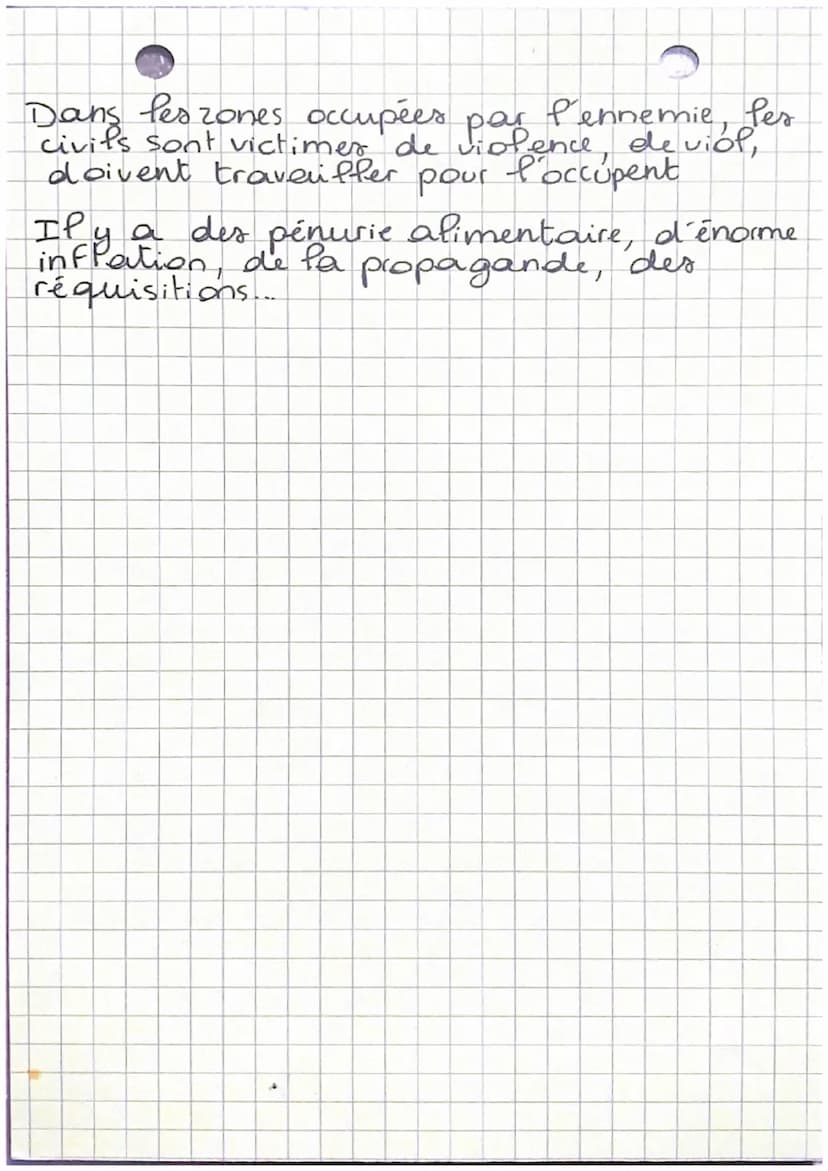 Dans les zones occupées par l'ennemie, les
civils sont victimes de violence, de viol,
doivent travailler pour l'occupent
Il y a des pénurie alimentaire, d'énorme
inflation, de la propagande, des
réquisitions...